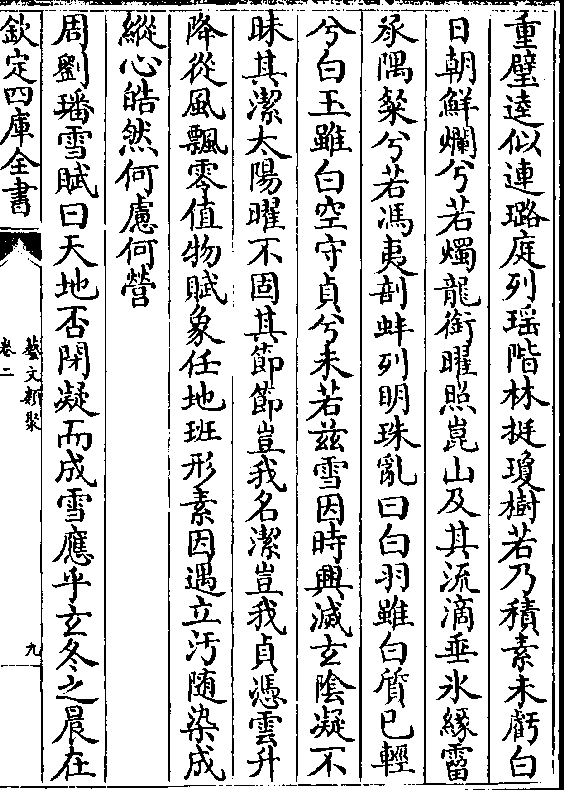 重璧逵似連璐庭列瑶階林挺瓊樹若乃積素未虧白
日朝鮮爛兮若燭龍銜曜照崑山及其流滴垂氷緣霤
承隅粲兮若馮夷剖蚌列明珠亂曰白羽雖白質已輕
兮白玉雖白空守貞兮未若兹雪因時興滅玄陰凝不
昧其潔太陽曜不固其節節豈我名潔豈我貞憑雲升
降從風飄零值物賦象任地班形素因遇立汚随染成
縱心皓然何慮何營
周劉璠雪賦曰天地否閉凝而成雪應乎玄冬之晨在
欽定四庫全書
藝文類聚
卷二
九